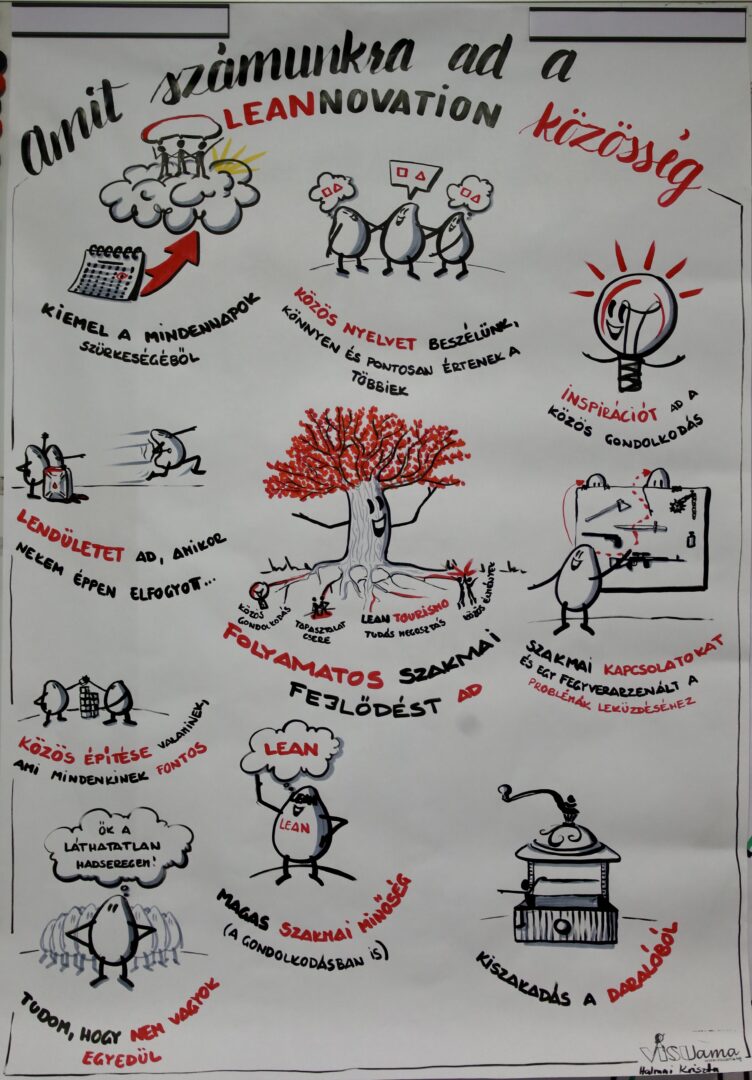 Amit számunkra ad a
LEANNOVATION közösség
KIEMEL A MINDENNAPOK
SZÜRKESÉGÉBŐL
KÖZÖS NYELVET BESZÉLÜNK,
KÖNNYEN ÉS PONTOSAN ÉRTENEK A
TÖBBIEK
INSPIRÁCIÓT AD A
KÖZÖS GONDOLKODÁS
LENDÜLETET AD, AMIKOR
NEKEM ÉPPEN ELFOGYOTT...
KÖZÖS
GONDOLKODÁS
TAPASZTALAT
CSERE
LEAN TOURISMO
TUDÁS MEGOSZTÁS
KÖZÖS ÉLMÉNYEK
FOLYAMATOS SZAKMAI
FEJLŐDÉST AD
SZAKMAI KAPCSOLATOKAT
ÉS EGY FEGYVERARZENÁLT A
PROBLÉMÁK LEKÜZDÉSÉHEZ
KÖZÖS ÉPÍTÉSE VALAMINEK,
AMI MINDENKINEK FONTOS
LEAN
LEAN
LEAN
MAGAS SZAKMAI MINŐSÉG
(A GONDOLKODÁSBAN IS)
ŐK A
LÁTHATATLAN
HADSEREGEM!
TUDOM, HOGY NEM VAGYOK
EGYEDÜL
KISZAKADÁS A DARÁLÓBÓL
VISUama
Halmai Kriszta